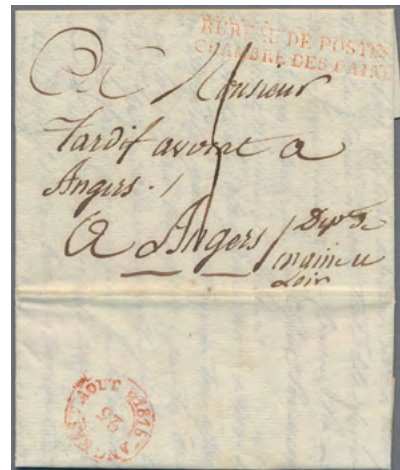 BUREAU DE POSTES
CHAMBRE DES PAIRS
A Monsieur
Tardif avocat a
Angers
A Angers
Dept de
maine et
Loir
AOUT 1816
25
ANGERS